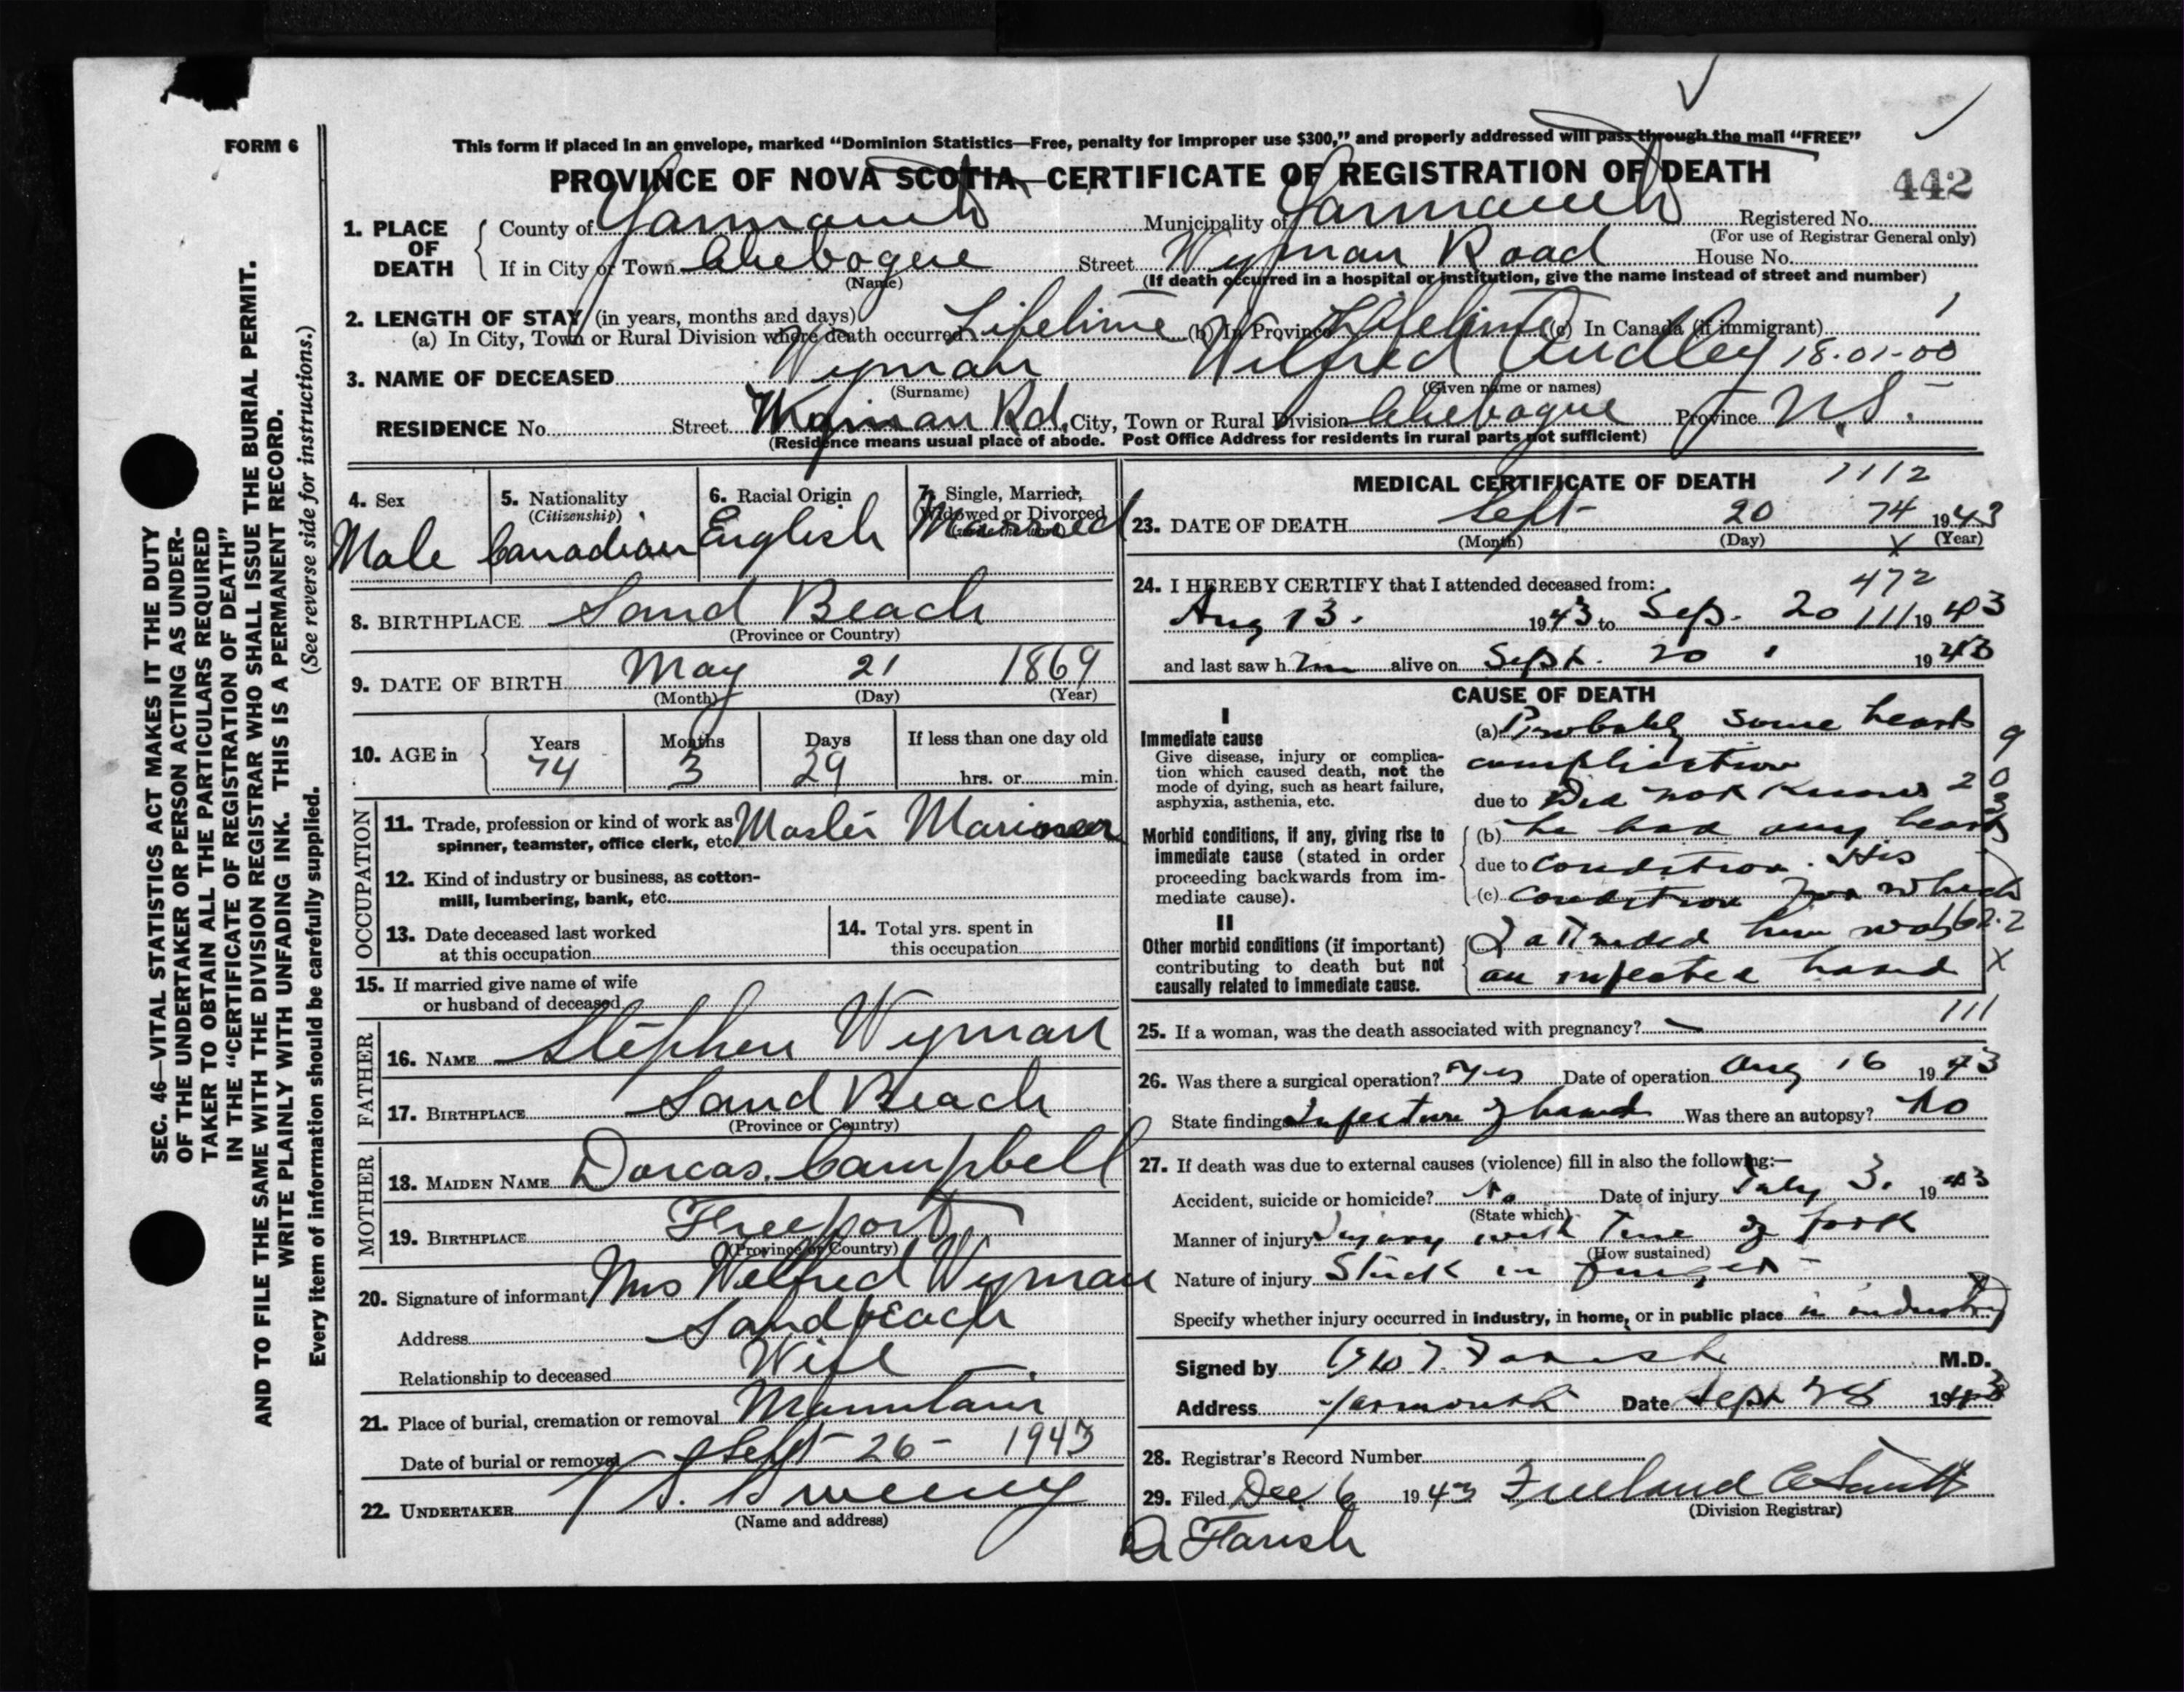 FORM 6
This form if placed in an envelope, marked "Dominion Statistics—Free, penalty for improper use $300," and properly addressed will pass through the mail "FREE"
PROVINCE OF NOVA SCOTIA, CERTIFICATE OF REGISTRATION OF DEATH
442
1. PLACE OF DEATH
County of Yarmouth Municipality of Yarmouth Registered No.
(For use of Registrar General only)
If in City or Town Chebogue Street Wyman Road House No.
(Name) (If death occurred in a hospital or institution, give the name instead of street and number)
2. LENGTH OF STAY (in years, months and days)
(a) In City, Town or Rural Division where death occurred Lifetime (b) In Province Lifetime (c) In Canada (if immigrant)
3. NAME OF DECEASED Wyman Wilfred Audley 18-01-00
(Surname) (Given name or names)
RESIDENCE No. Street Wyman Rd. City, Town or Rural Division Chebogue Province N.S.
(Residence means usual place of abode. Post Office Address for residents in rural parts not sufficient)
4. Sex Male
5. Nationality (Citizenship) Canadian
6. Racial Origin English
7. Single, Married, Widowed or Divorced Married
8. BIRTHPLACE Sand Beach
(Province or Country)
9. DATE OF BIRTH May 21 1869
(Month) (Day) (Year)
10. AGE in Years Months Days If less than one day old
74 3 29 hrs. or min.
OCCUPATION
11. Trade, profession or kind of work as spinner, teamster, office clerk, etc. Master Mariner
12. Kind of industry or business, as cotton-mill, lumbering, bank, etc.
13. Date deceased last worked at this occupation
14. Total yrs. spent in this occupation
15. If married give name of wife or husband of deceased
FATHER
16. NAME Stephen Wyman
17. BIRTHPLACE Sand Beach
(Province or Country)
MOTHER
18. MAIDEN NAME Dorcas Campbell
19. BIRTHPLACE Freeport
(Province or Country)
20. Signature of informant Mrs Wilfred Wyman
Address Sandbeach
Relationship to deceased Wife
21. Place of burial, cremation or removal Mountain
Date of burial or removal Sept 26 - 1943
22. UNDERTAKER V. S. Sweeny
(Name and address)
MEDICAL CERTIFICATE OF DEATH 1112
23. DATE OF DEATH Sept 20 74 1943
(Month) (Day) X (Year)
24. I HEREBY CERTIFY that I attended deceased from: 472
Aug 13. 1943 to Sep. 20 111 1943
and last saw him alive on Sept. 20 1943
CAUSE OF DEATH
I
Immediate cause
Give disease, injury or complication which caused death, not the mode of dying, such as heart failure, asphyxia, asthenia, etc.
(a) Probably some heart
complication
due to Did not know
Morbid conditions, if any, giving rise to immediate cause (stated in order proceeding backwards from immediate cause).
(b) he had any heart
due to condition. His
(c) condition for which
II
Other morbid conditions (if important) contributing to death but not causally related to immediate cause.
I attended him was
an infected hand X
111
25. If a woman, was the death associated with pregnancy? —
26. Was there a surgical operation? Yes Date of operation Aug 16 1943
State findings Infection of hand Was there an autopsy? No
27. If death was due to external causes (violence) fill in also the following:—
Accident, suicide or homicide? No Date of injury July 3. 1943
(State which)
Manner of injury Injury with Tine of fork
(How sustained)
Nature of injury Stuck in finger
Specify whether injury occurred in industry, in home, or in public place in industry
Signed by Geo T. Farish M.D.
Address Yarmouth Date Sept 28 1943
28. Registrar's Record Number
29. Filed Dec 6 1943 Freeland C Smith
(Division Registrar)
Dr Farish
SEC. 46—VITAL STATISTICS ACT MAKES IT THE DUTY
OF THE UNDERTAKER OR PERSON ACTING AS UNDER-
TAKER TO OBTAIN ALL THE PARTICULARS REQUIRED
IN THE "CERTIFICATE OF REGISTRATION OF DEATH"
AND TO FILE THE SAME WITH THE DIVISION REGISTRAR WHO SHALL ISSUE THE BURIAL PERMIT.
WRITE PLAINLY WITH UNFADING INK. THIS IS A PERMANENT RECORD.
Every item of information should be carefully supplied. (See reverse side for instructions.)